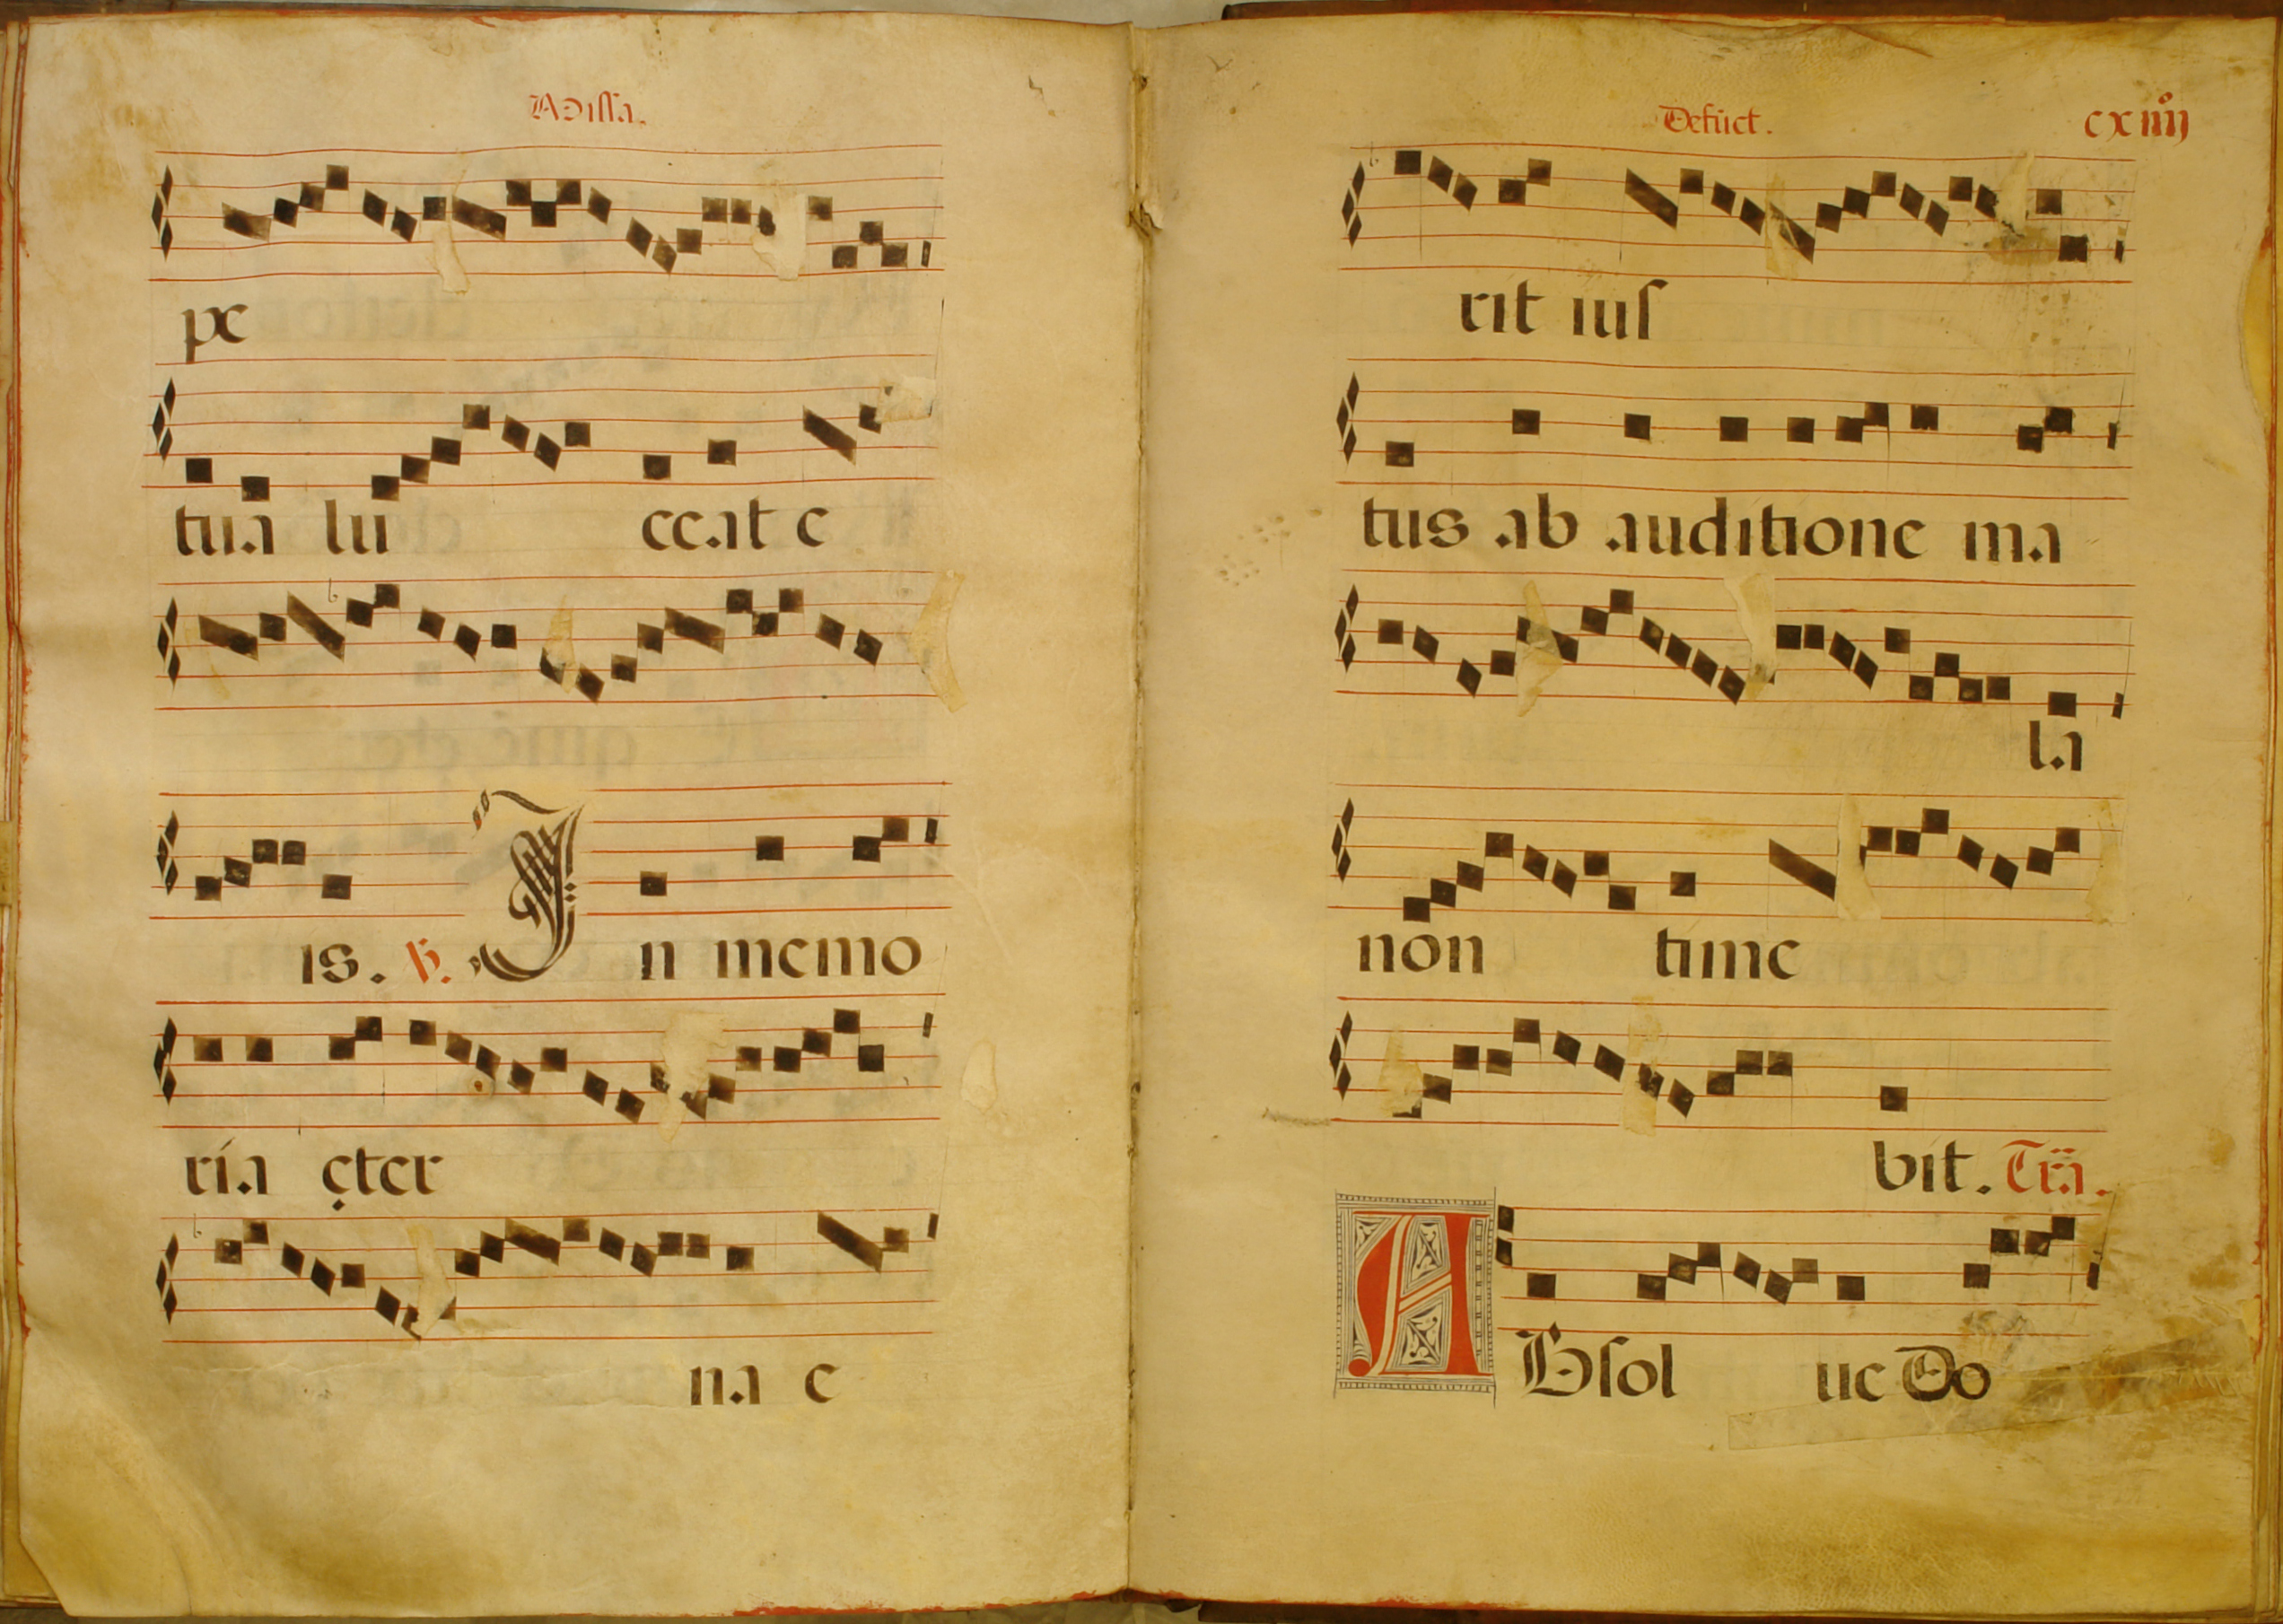 Missa.
pe
tua lu ceat e
is. ℟. In memo
ria ęter
na e
Defūct. cxiiij
rit ius
tus ab auditione ma
la
non time
bit. Tra.
ABsol ue Do